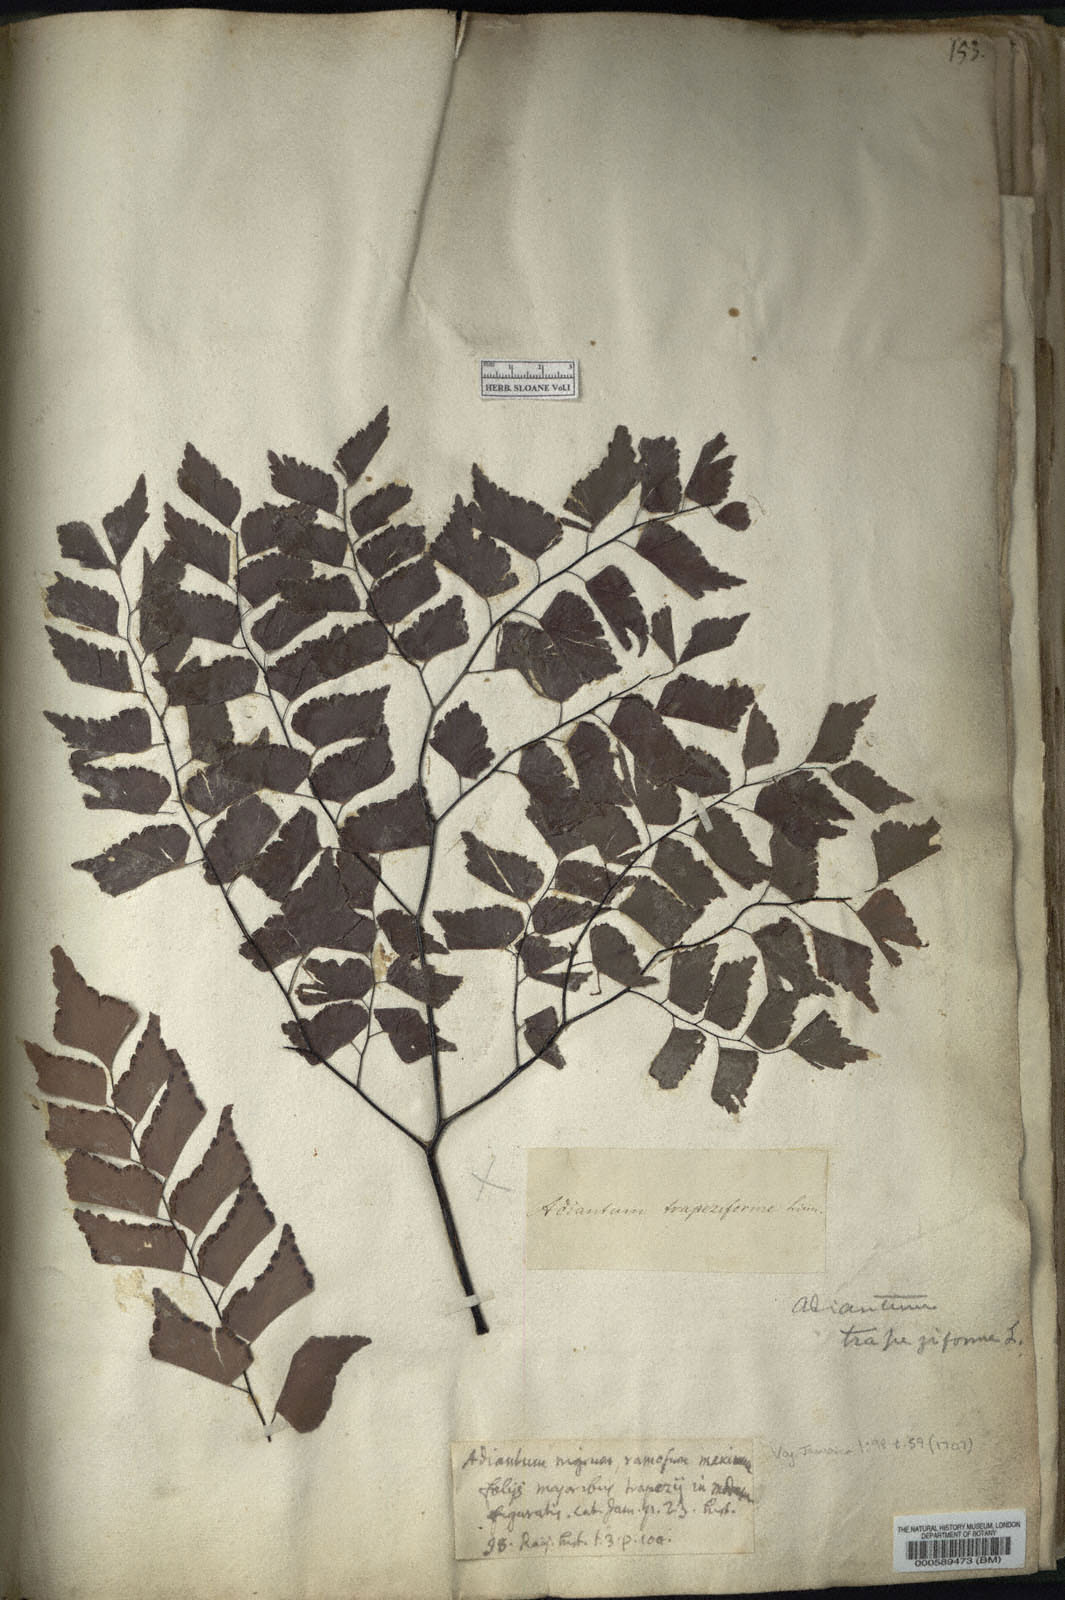 153.
mm 1 2 3
HERB. SLOANE Vol.1
Adiantum trapeziforme Linn.
Adiantum
trapeziforme L.
Voy. Jamaica 1: 98 t. 59 (1707)
Adiantum nigrum, ramosum maximum
folijs majoribus trapezij in modum
figuratis. Cat. Jam. p. 23. hist.
98. Raij. hist. t. 3. p. 100.
THE NATURAL HISTORY MUSEUM, LONDON
DEPARTMENT OF BOTANY
000589473 (BM)